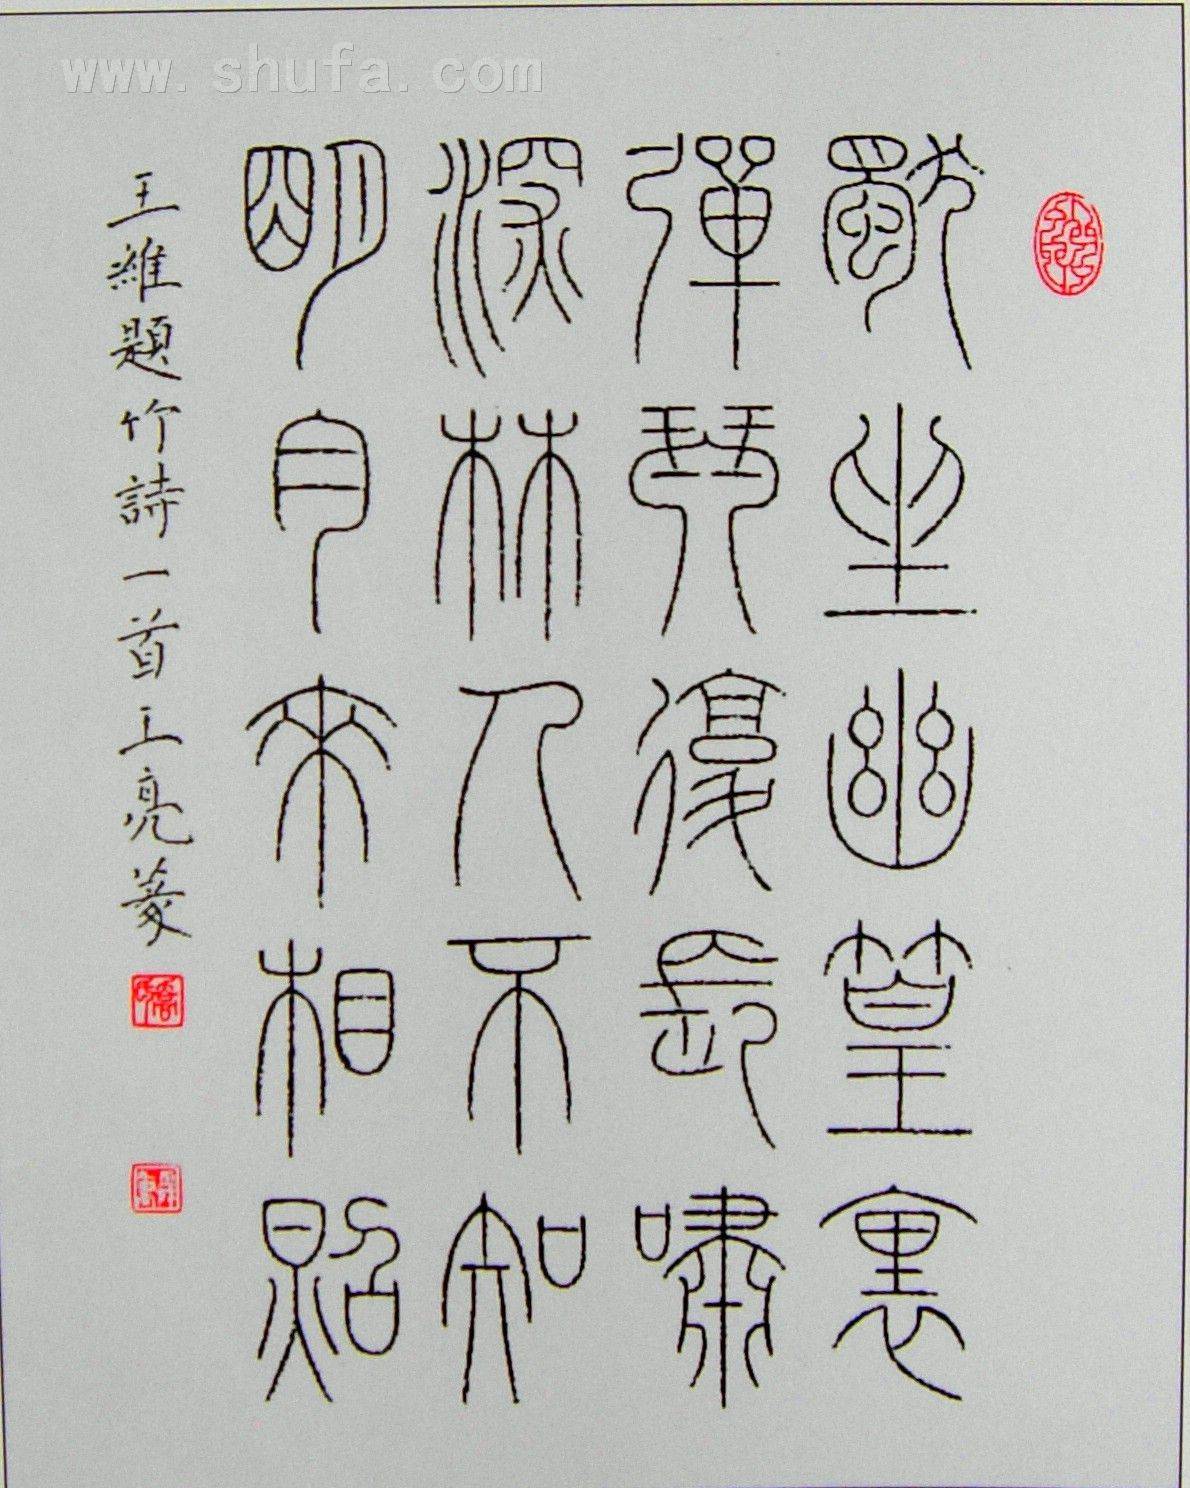 www.shufa.com
獨坐幽篁裏
彈琴復長嘯
深林人不知
明月來相照
王維題竹詩一首王亮篆